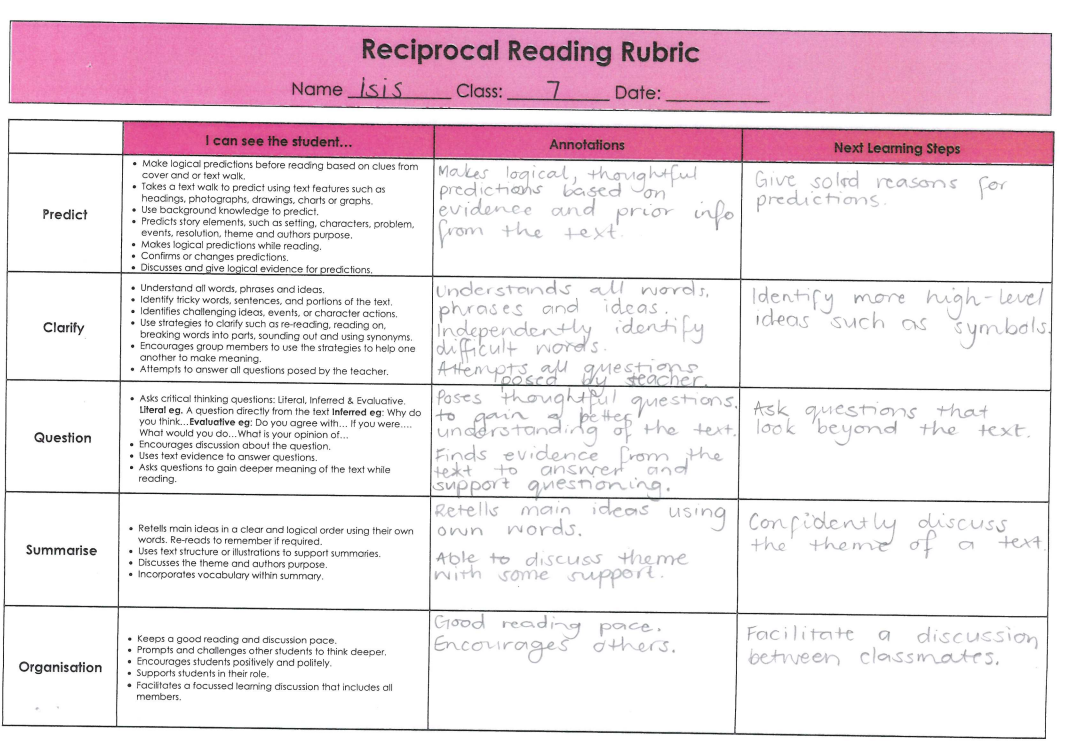 Reciprocal Reading Rubric
Name isis Class: 7 Date:
I can see the student...
Annotations
Next Learning Steps
Predict
• Make logical predictions before reading based on clues from
cover and or text walk.
• Takes a text walk to predict using text features such as
headings, photographs, drawings, charts or graphs.
• Use background knowledge to predict.
• Predicts story elements, such as setting, characters, problem,
events, resolution, theme and authors purpose.
• Makes logical predictions while reading.
• Confirms or changes predictions.
• Discusses and give logical evidence for predictions.
Makes logical, thoughtful
predictions based on
evidence and prior info
from the text.
Give solid reasons for
predictions.
Clarify
• Understand all words, phrases and ideas.
• Identify tricky words, sentences, and portions of the text.
• Identifies challenging ideas, events, or character actions.
• Use strategies to clarify such as re-reading, reading on,
breaking words into parts, sounding out and using synonyms.
• Encourages group members to use the strategies to help one
another to make meaning.
• Attempts to answer all questions posed by the teacher.
Understands all words,
phrases and ideas.
Independently identify
difficult words.
Attempts all questions
posed by teacher.
Identify more high-level
ideas such as symbols.
Question
• Asks critical thinking questions: Literal, Inferred & Evaluative.
Literal eg. A question directly from the text Inferred eg: Why do
you think...Evaluative eg: Do you agree with... If you were....
What would you do...What is your opinion of...
• Encourages discussion about the question.
• Uses text evidence to answer questions.
• Asks questions to gain deeper meaning of the text while
reading.
Poses thoughtful questions.
to gain a better
understanding of the text.
Finds evidence from the
text to answer and
support questioning.
Ask questions that
look beyond the text.
Summarise
• Retells main ideas in a clear and logical order using their own
words. Re-reads to remember if required.
• Uses text structure or illustrations to support summaries.
• Discusses the theme and authors purpose.
• Incorporates vocabulary within summary.
Retells main ideas using
own words.
Able to discuss theme
with some support.
Confidently discuss
the theme of a text.
Organisation
• Keeps a good reading and discussion pace.
• Prompts and challenges other students to think deeper.
• Encourages students positively and politely.
• Supports students in their role.
• Facilitates a focussed learning discussion that includes all
members.
Good reading pace.
Encourages others.
Facilitate a discussion
between classmates.